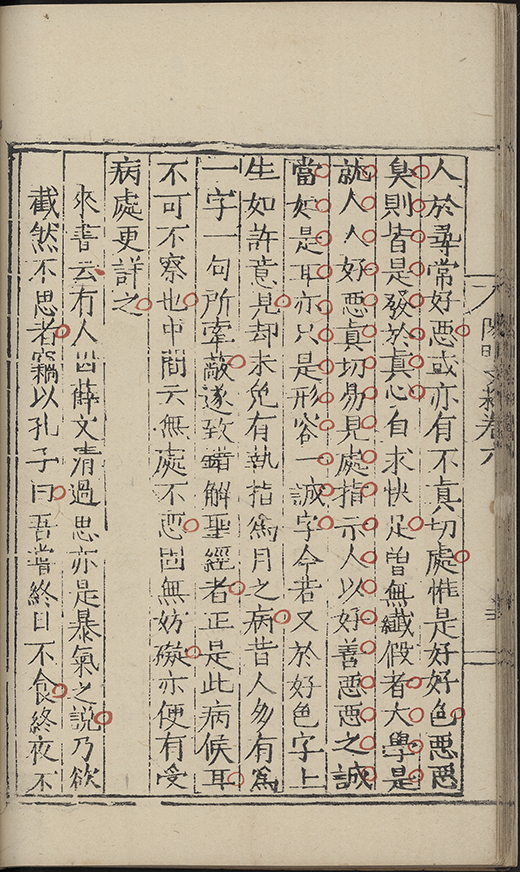 陽明文卷六
人於尋常好惡或亦有不眞切處惟是好好色惡惡
臭則皆是發於眞心自求快足曾無纖假者大學是
就人人好惡眞切易見處指示人以好善惡惡之誠
當如是耳亦只是形容一誠字今若又於好色字上
生如許意見却未免有執指爲月之病昔人多有爲
一字一句所牽蔽遂致錯解聖經者正是此病候耳
不可不察也中間云無處不惡固無妨礙亦便有受
病處更詳之
來書云有人因薛文清過思亦是暴氣之說乃欲
截然不思者竊以孔子曰吾嘗終日不食終夜不